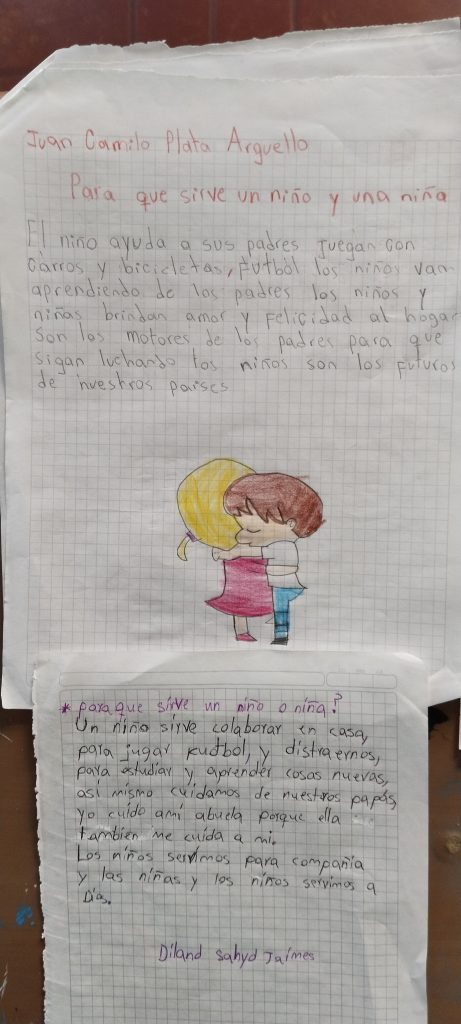 Juan Camilo Plata Arguello
Para que sirve un niño y una niña
El niño ayuda a sus padres juegan con
carros y bicicletas, Futbol los niños van
aprendiendo de los padres los niños y
niñas brindan amor y Felicidad al hogar
Son los motores de los padres para que
sigan luchando los niños son los Futuros
de nuestros paises
* para que sirve un niño o niña?
Un niño sirve colaborar en casa,
para jugar Fudbol, y distraernos,
para estudiar y aprender cosas nuevas,
asi mismo cuidamos de nuestros papás,
yo cuido ami abuela porque ella
tambien me cuida a mi.
Los niños servimos para compañia
y las niñas y los niños servimos a
Dios.
Diland Sahyd Jaimes